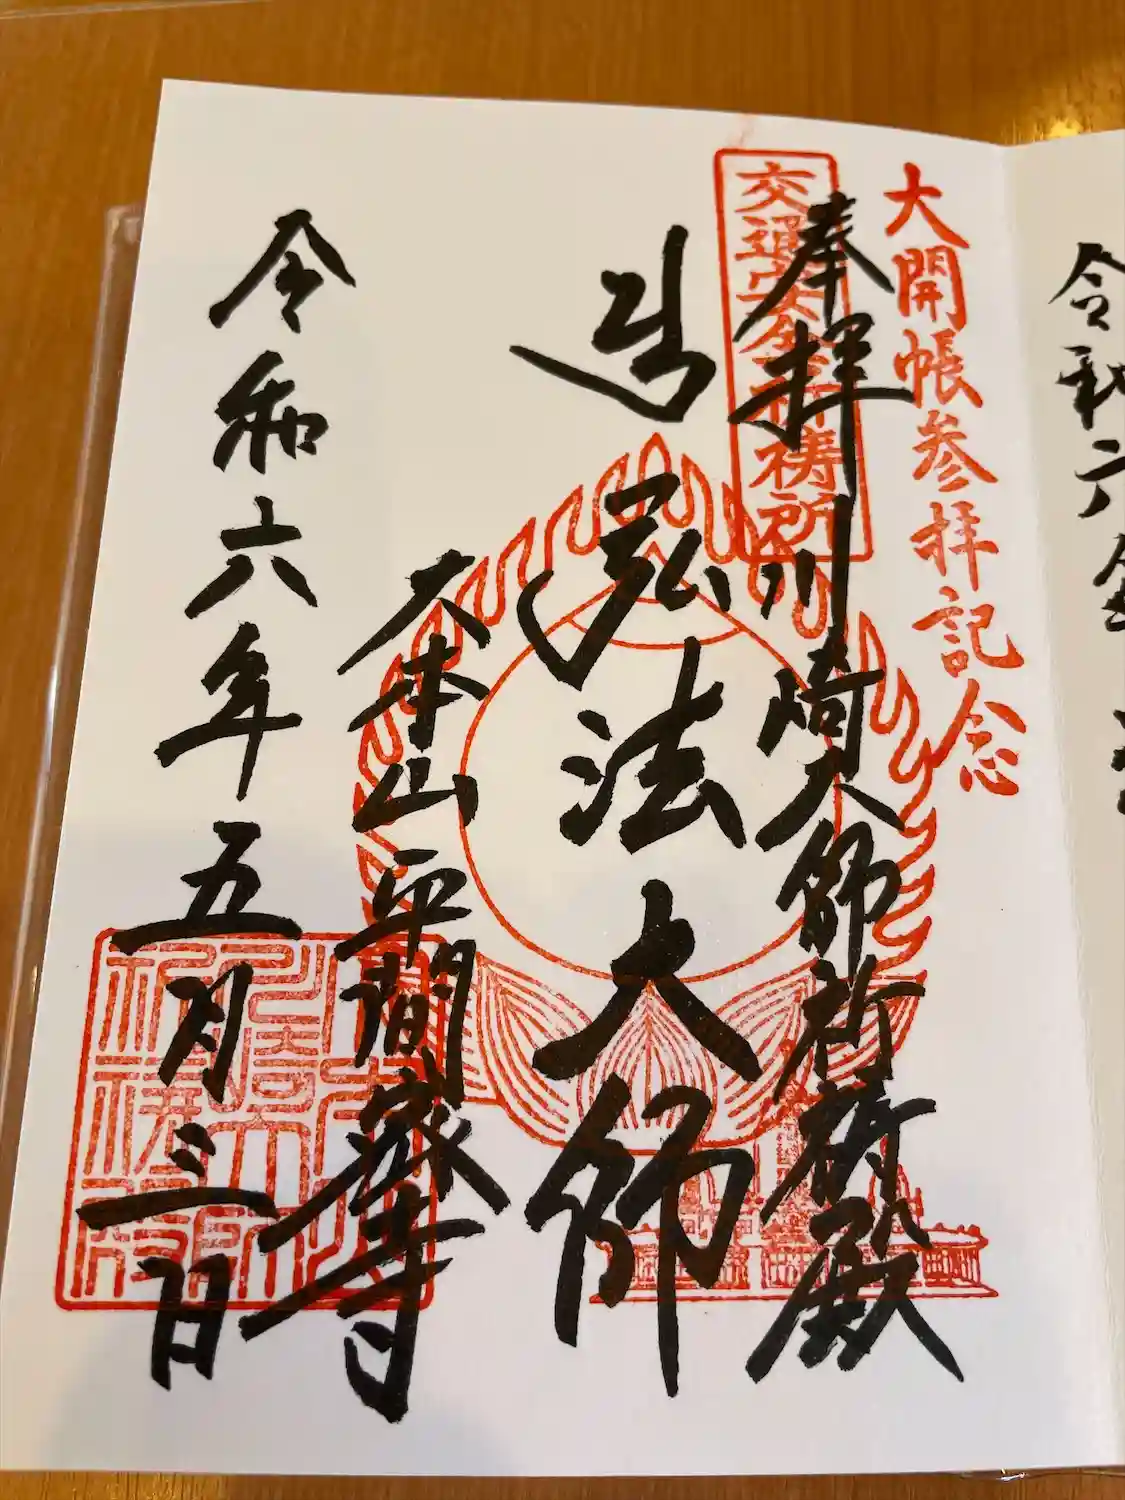 大開帳参拝記念
交通安全祈祷所
奉拝
川崎大師祈祷殿
遍
弘法大師
大本山平間寺
令和六年五月三日
令和六